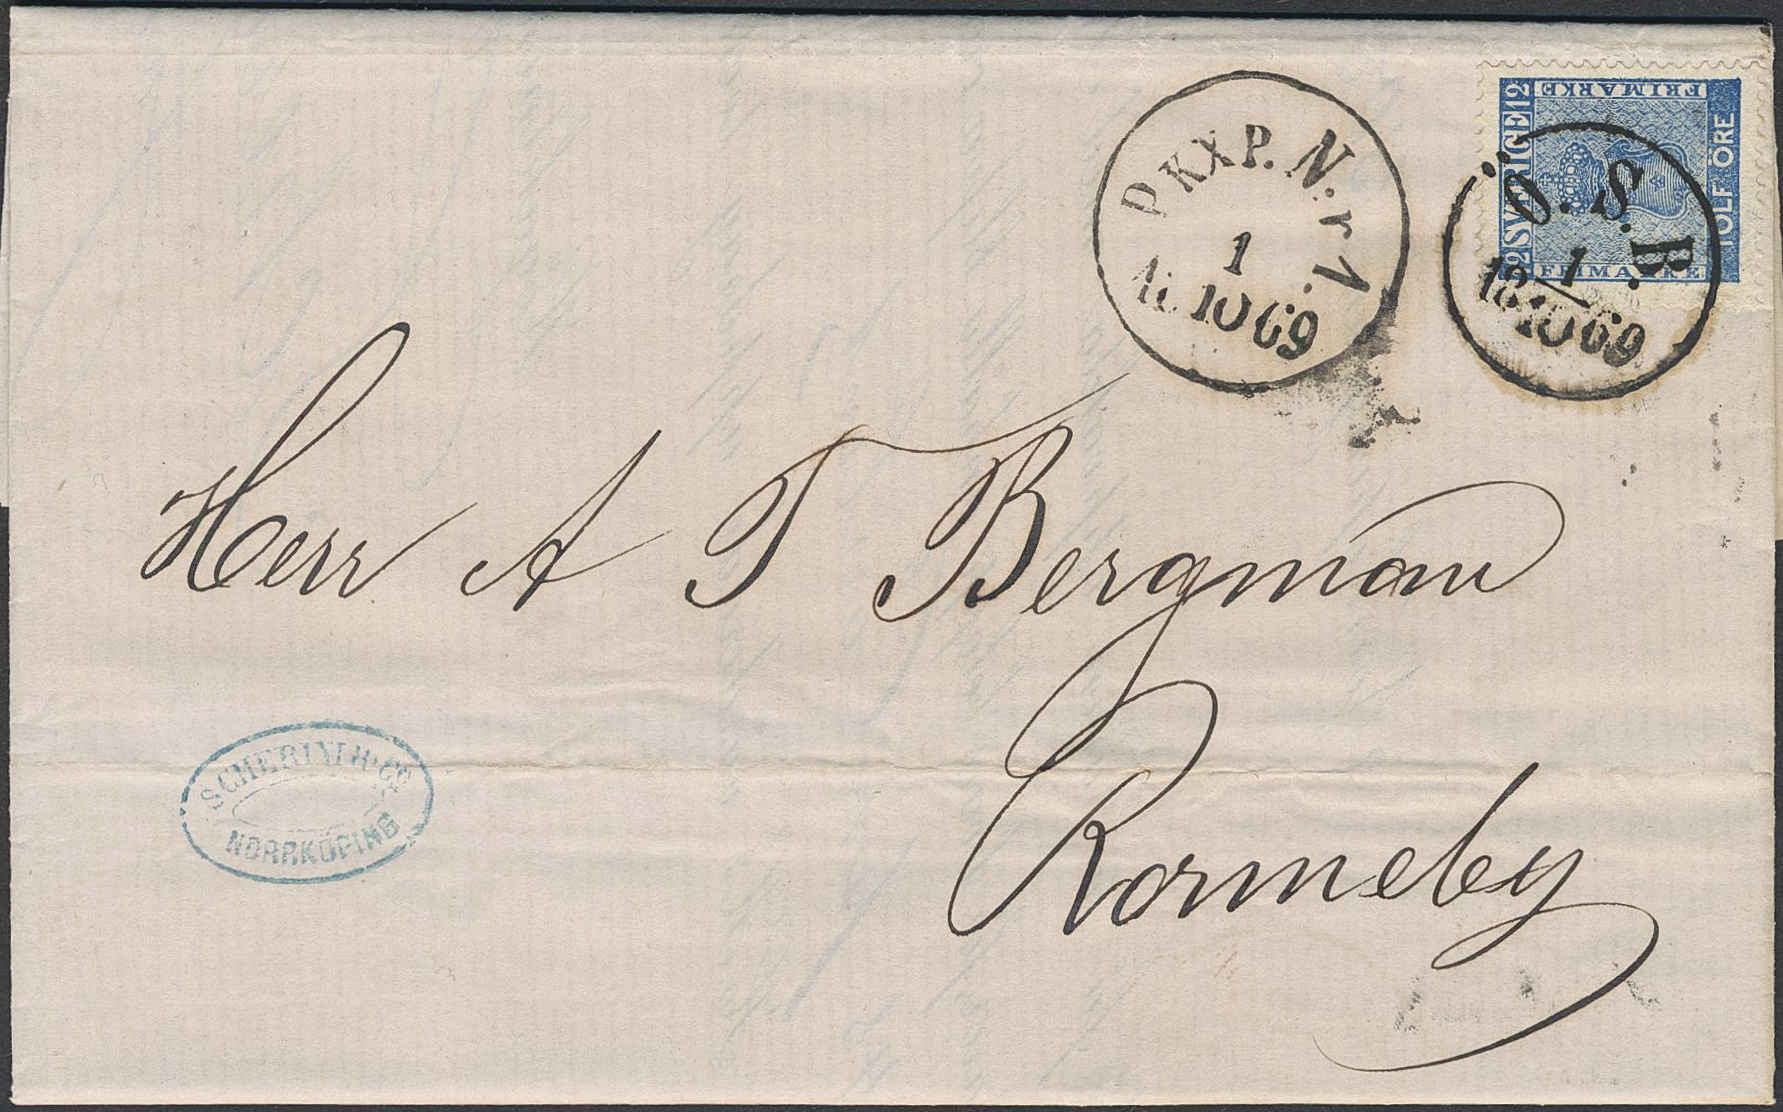 PKXP. N.r 1.
1
18 10 69
FRIMÄRKE
12 SVERIGE 12
TOLF ÖRE
FRIMÄRKE
Ö. S. B.
1
18 10 69
Herr A T Bergman
Ronneby
SCHERINI & Co
NORRKÖPING